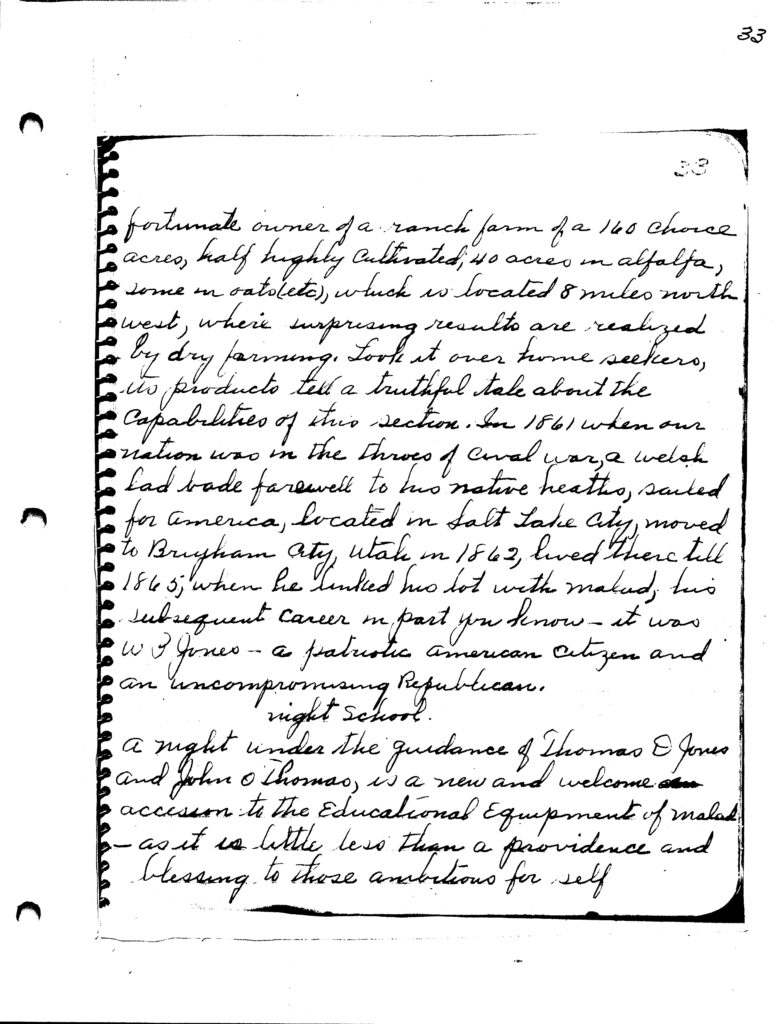 33
33
fortunate owner of a ranch farm of a 160 choice
acres, half highly Cultivated, 40 acres in alfalfa,
some in oats (etc), which is located 8 miles north
west, where surprising results are realized
by dry farming. Look it over home seekers,
its products tell a truthful tale about the
Capabilities of this section. In 1861 when our
nation was in the throes of Cival war, a welsh
lad bade farewell to his native heaths, sailed
for america, located in Salt Lake City, moved
to Brigham City, Utah in 1862, lived there till
1865, when he linked his lot with malad, his
subsequent Career in part you know - it was
W Jones - a patriotic american Citizen and
an uncompromising Republican.
night School.
A night under the guidance of Thomas D Jones
and John O Thomas, is a new and welcome
accesion to the Educational Equipment of malad
- as it is little less than a providence and
blessing to those ambitious for self